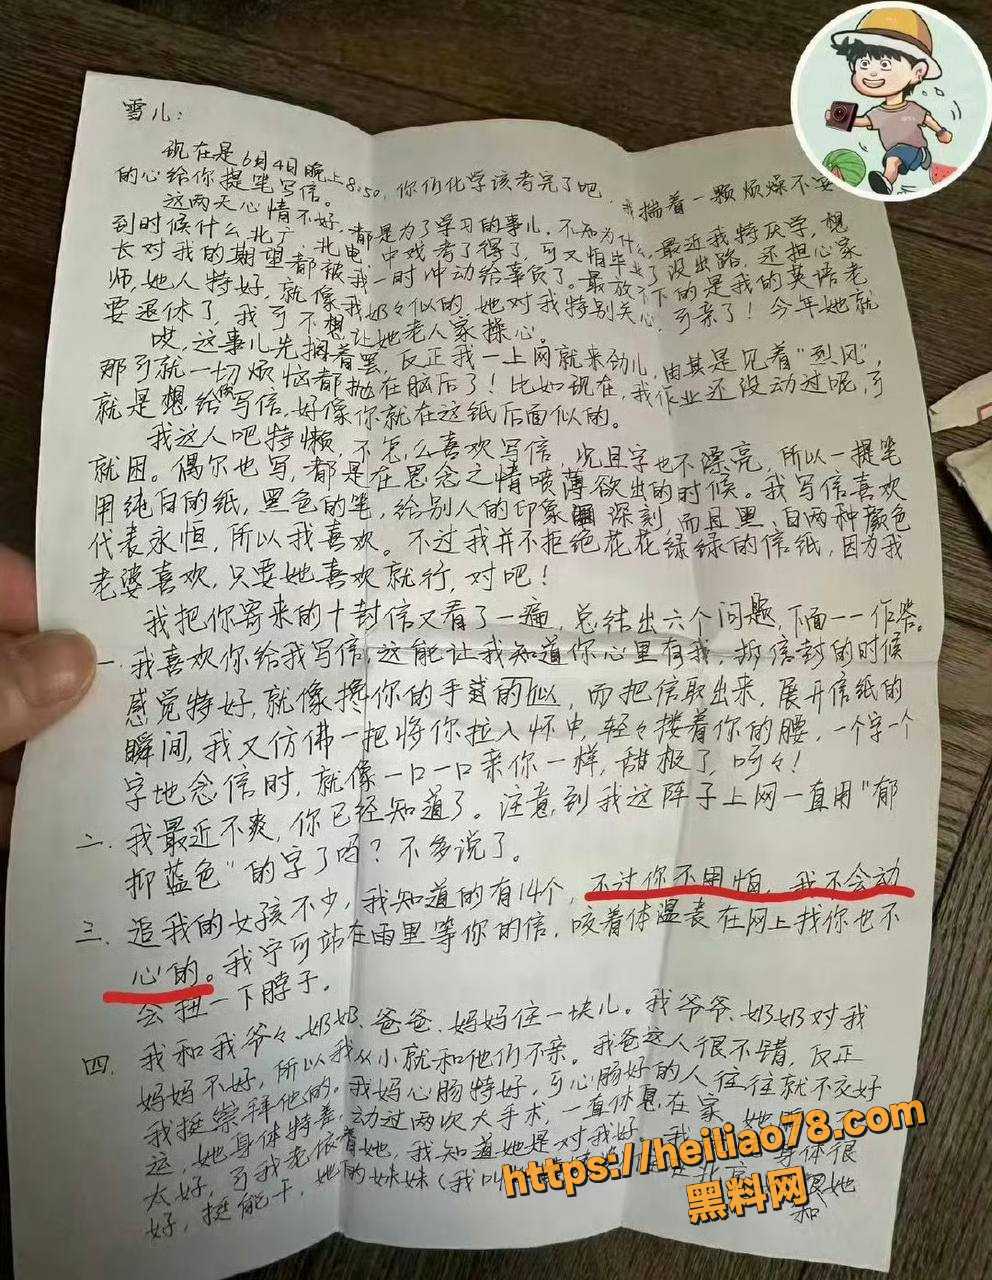 雪儿：
现在是6月4日晚上8:50，你们化学该考完了吧，我揣着一颗烦燥不安
的心给你提笔写信。
这两天心情不好，都是为了学习的事儿，不知为什么，最近我特厌学，想
到时候什么北广、北电、中戏考了得了，可又怕毕业了没出路，还担心家
长对我的期望都被我一时冲动给辜负了。最放不下的是我的英语老
师，她人特好，就像我奶々似的，她对我特别关心，可亲了！今年她就
要退休了，我可不想让她老人家操心。
哎，这事儿先搁着罢，反正我一上网就来劲儿，由其是见着“烈风”，
那可就一切烦恼都抛在脑后了！比如现在，我作业还没动过呢，可
就是想给你写信，好像你就在这纸后面似的。
我这人吧特懒，不怎么喜欢写信，况且字也不漂亮，所以一提笔
就困。偶尔也写，都是在思念之情喷薄欲出的时候。我写信喜欢
用纯白的纸，黑色的笔，给别人的印象深刻，而且黑、白两种颜色
代表永恒，所以我喜欢。不过我并不拒绝花花绿绿的信纸，因为我
老婆喜欢，只要她喜欢就行，对吧！
我把你寄来的十封信又看了一遍，总结出六个问题，下面一一作答。
一.我喜欢你给我写信，这能让我知道你心里有我，拆信封的时候
感觉特好，就像搀你的手似的，而把信取出来，展开信纸的
瞬间，我又仿佛一把将你拉入怀中，轻々搂着你的腰，一个字一个
字地念信时，就像一口一口亲你一样，甜极了，呵々！
二.我最近不爽，你已经知道了。注意到我这阵子上网一直用“郁
抑蓝色”的字了吗？不多说了。
三.追我的女孩不少，我知道的有14个，不过你不用怕，我不会动
心的。我宁可站在雨里等你的信，咬着体温表在网上找你也不
会扭一下脖子。
四.我和我爷々、奶奶、爸爸、妈妈住一块儿。我爷爷、奶奶对我
妈妈不好，所以我从小就和他们不亲。我爸这人很不错，反正
我挺崇拜他的。我妈心肠特好，可心肠好的人往往就不交好
运，她身体特差，动过两次大手术，一直休息在家，她
太好，可我老依着她，我知道她是对我好，身体很
好，挺能干，她的妹妹（我叫 跟她
和
https://heiliao78.com
黑料网